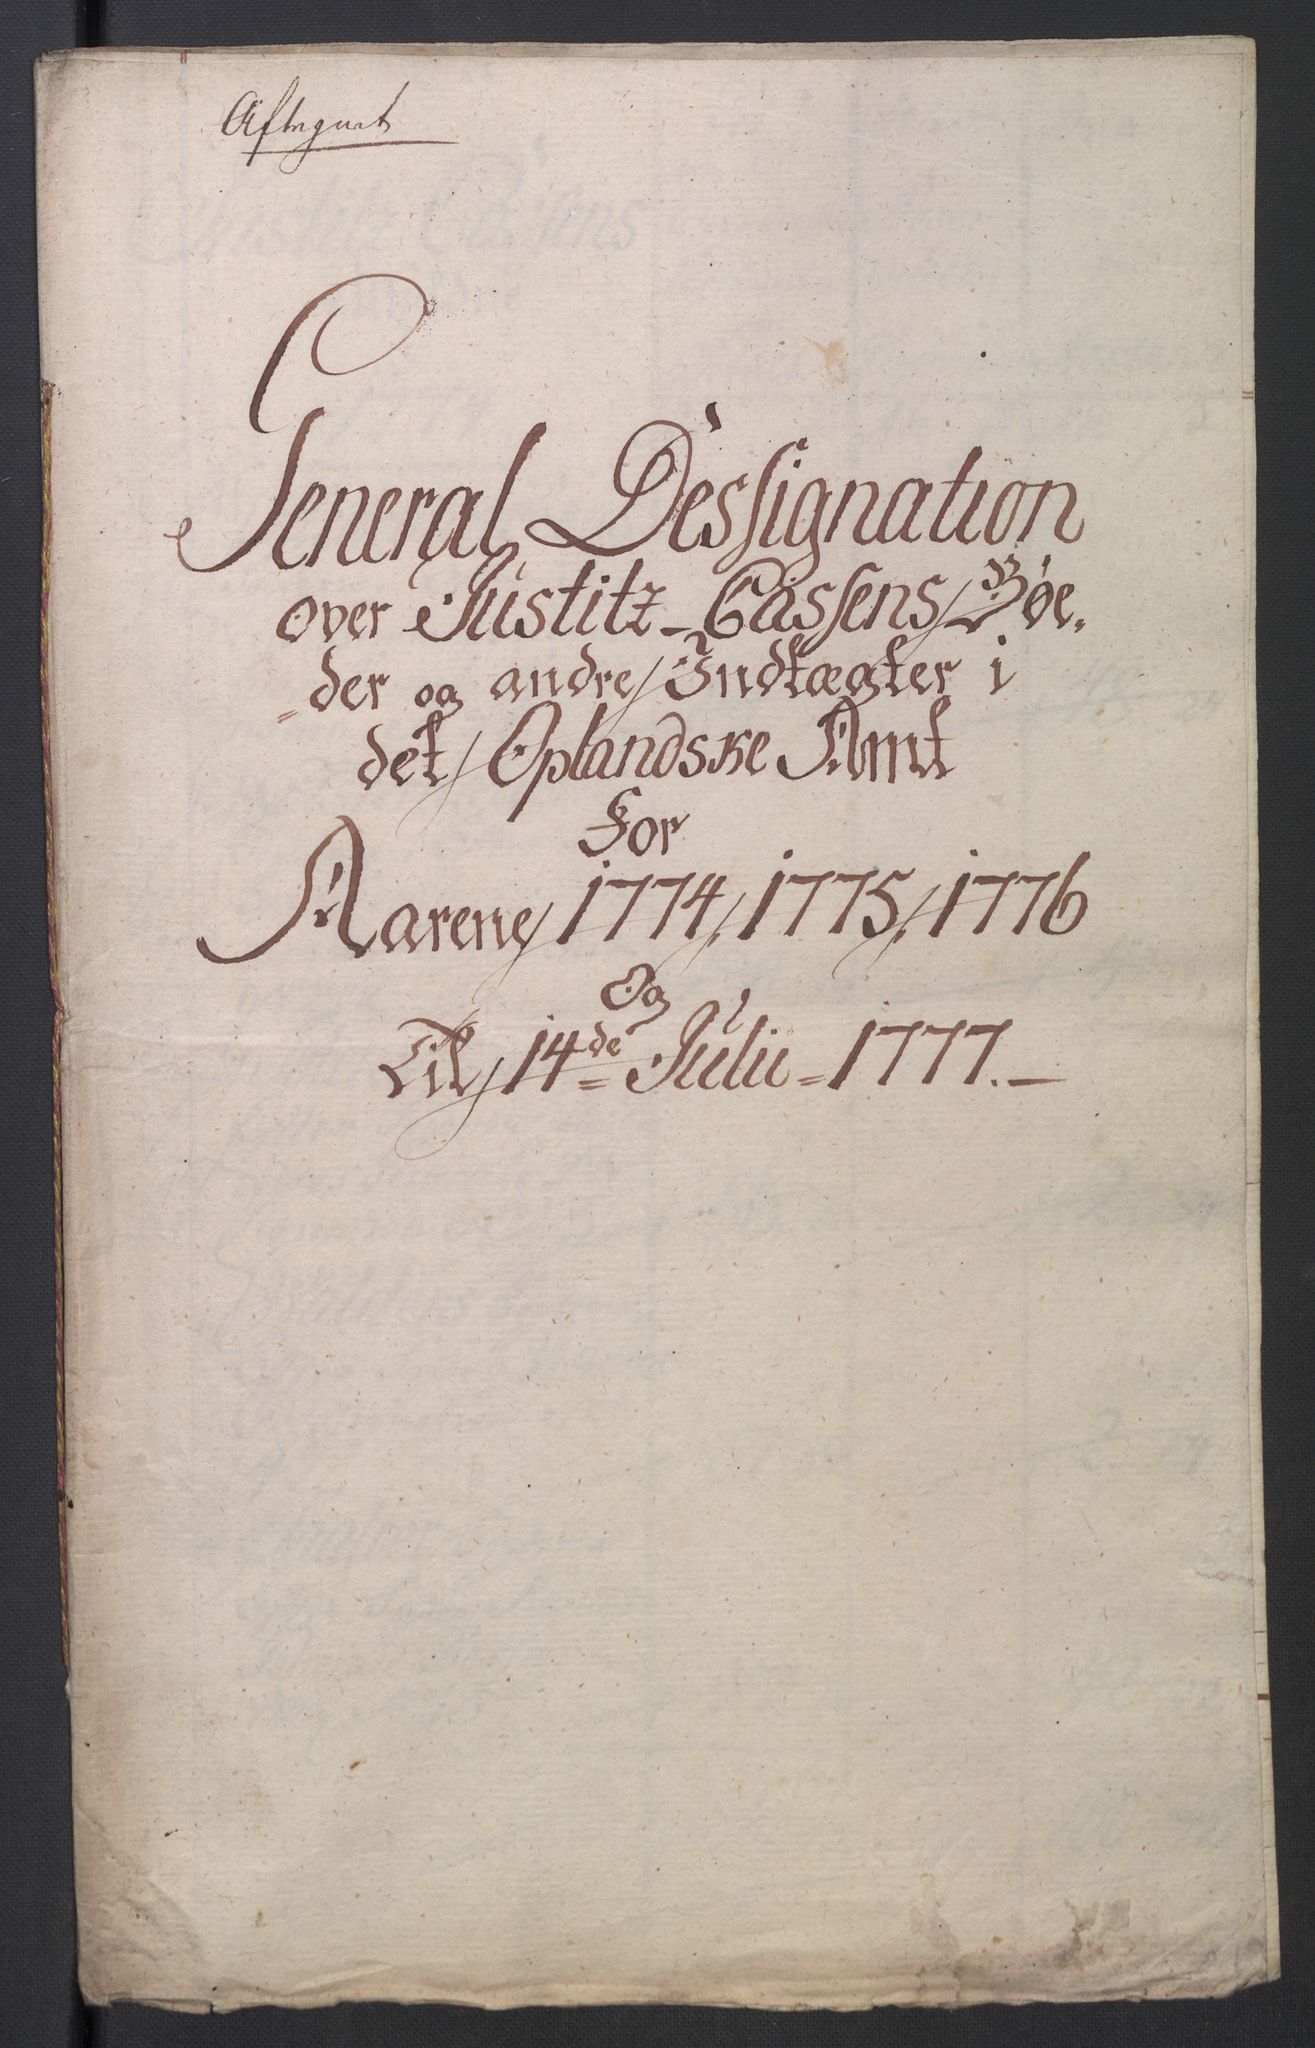 Aftegnet
General Dessignation
over Justitz-Cassens Bøe-
der og andre Indtægter i
det Oplandske Amt
For
Aarene 1774, 1775, 1776
Og
Til 14de Julii 1777.